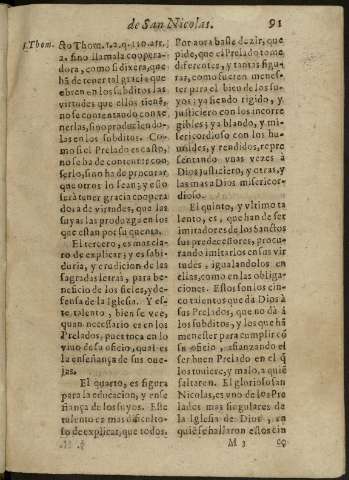 de San Nicolas. 91
S. Thom.
sto Thom. 1. 2. q. 110. art.
2. sino llamala coopera-
dora, como si dixera, que
há de tener tal gracia que
obren en los subditos las
virtudes que ellos tienē,
no se contentando con te-
nerlas, sino produziendo-
las en los subditos. Co-
mo si el Prelado es casto,
no se ha de contentar con
serlo, sino ha de procurar
que otros lo sean; y esto
serà tener gracia coopera
dora de virtudes, que las
suyas las produzga en los
que estan por su quenta.
El tercero, es mas cla-
ro de explicar; y es sabi-
duria, y erudicion de las
sagradas letras, para be-
neficio de los fieles, y de-
fensa de la Iglesia. Y es-
te talento, bien se vee,
quan necessario es en los
Prelados, pues toca en lo
vivo de su oficio, qual es
la enseñança de sus ove-
jas.
El quarto, es figura
para la educacion, y ense
ñança de los suyos. Este
talento es mas dificulto-
so de explicar, que todos.
Por aora baste dezir, que
pide, que el Prelado tome
diferentes, y tantas figu-
ras, como fueren menes-
ter para el bien de los su-
yos; ya siendo rigido, y
justiciero con los incorre
gibles; ya blando, y mi-
sericordioso con los hu-
mildes, y rendidos, repre
sentando unas vezes à
Dios justiciero, y otras, y
las mas a Dios misericor-
dioso.
El quinto, y ultimo ta
lento, es, que han de ser
imitadores de los Sanctos
sus predecessores, procu-
rando imitarlos en las vir
tudes, igualandolos en
ellas, como en las obliga-
ciones. Estos son los cin-
co talentos que dà Dios à
sus Prelados, que no dà à
los subditos, y los que hā
menester para cumplir cō
su oficio, afiançando el
ser buen Prelado en el q̄
los tuviere, y malo, a quiē
faltaren. El glorioso san
Nicolas, es uno de los Pre
lados mas singulares de
la Iglesia de Dios, en
quiē se hallaron estos cin
M 3 co